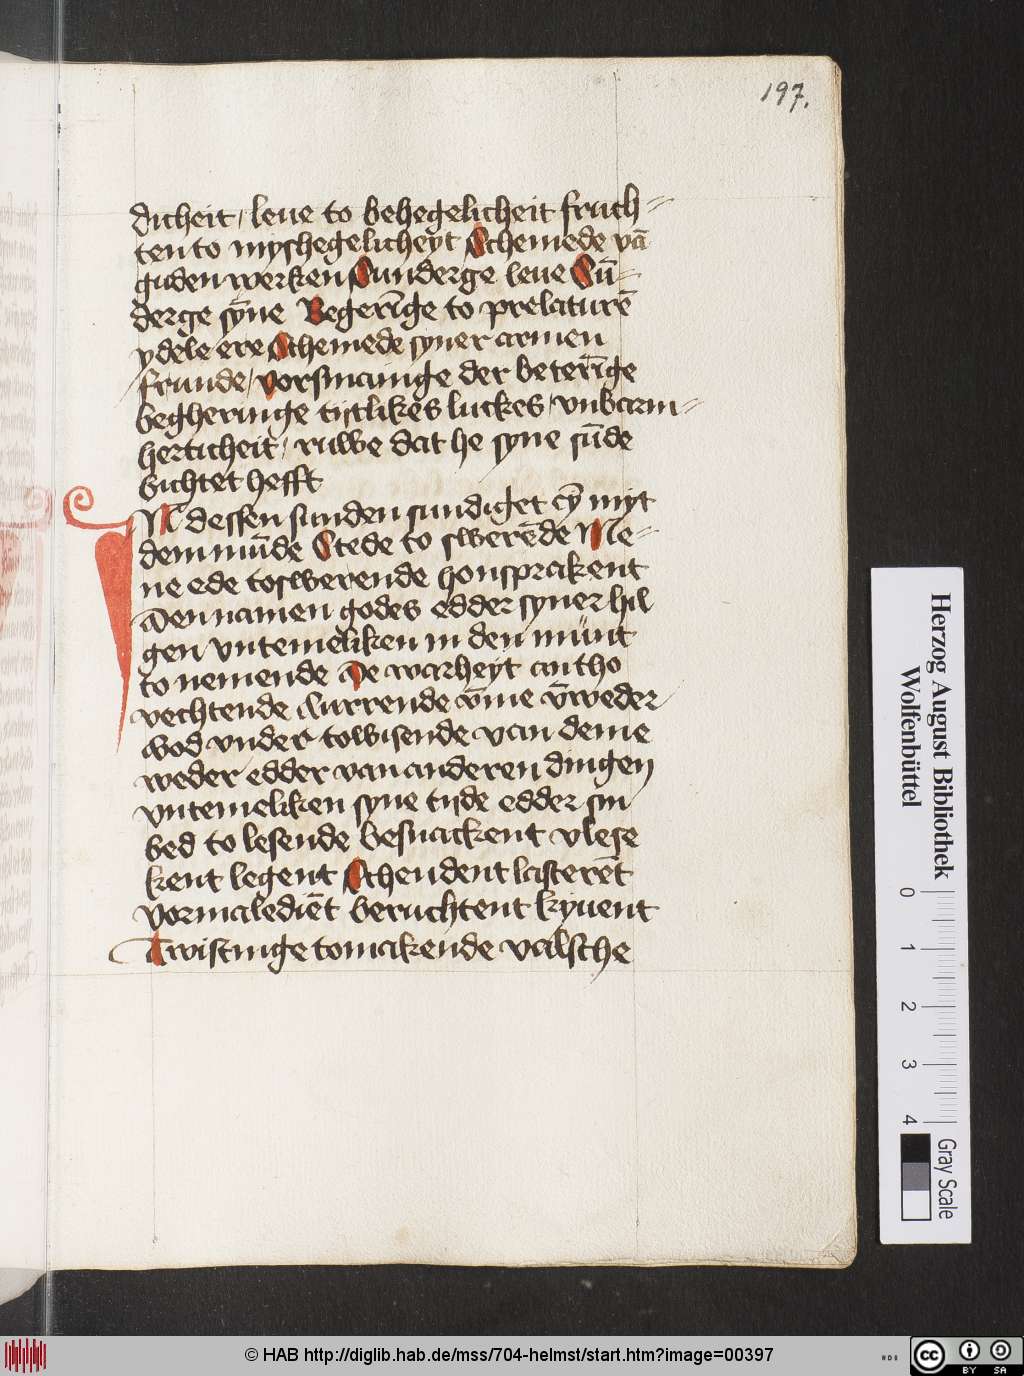 197.
dicheit / leue to behegelicheit fruch=
ten to myshegelicheyt Schemede vā
guden werken Sunderge leue Sū=
derge sȳne Begerīge to prelaturē
ydele ere Schemede syner armen
frunde / vorsmainge der beterīge
begheringe tijtlikes luckes / vnbarm=
herticheit / ruwe dat he syne sūde
bichtet hefft
IN dessen sunden sundiget eȳ myt
dem mūde Stede to swerēde Me=
ne ede toswerende honsprakent
Den namen godes edder syner hil
gen vntemeliken in den munt
to nemende De warheyt an tho
vechtende Murrende v̄me v̄weder
God vnder towisende van deme
weder edder van anderen dingen
vntemeliken syne tijde edder sin
bed to lesende besnackent vlege
kent legent Schendent lasterēt
vormalediēt beruchtent kyuent
Twistinge tomakende valsche
Herzog August Bibliothek
Wolfenbüttel
0 1 2 3 4
Gray Scale
© HAB http://diglib.hab.de/mss/704-helmst/start.htm?image=00397
HAB
cc BY SA